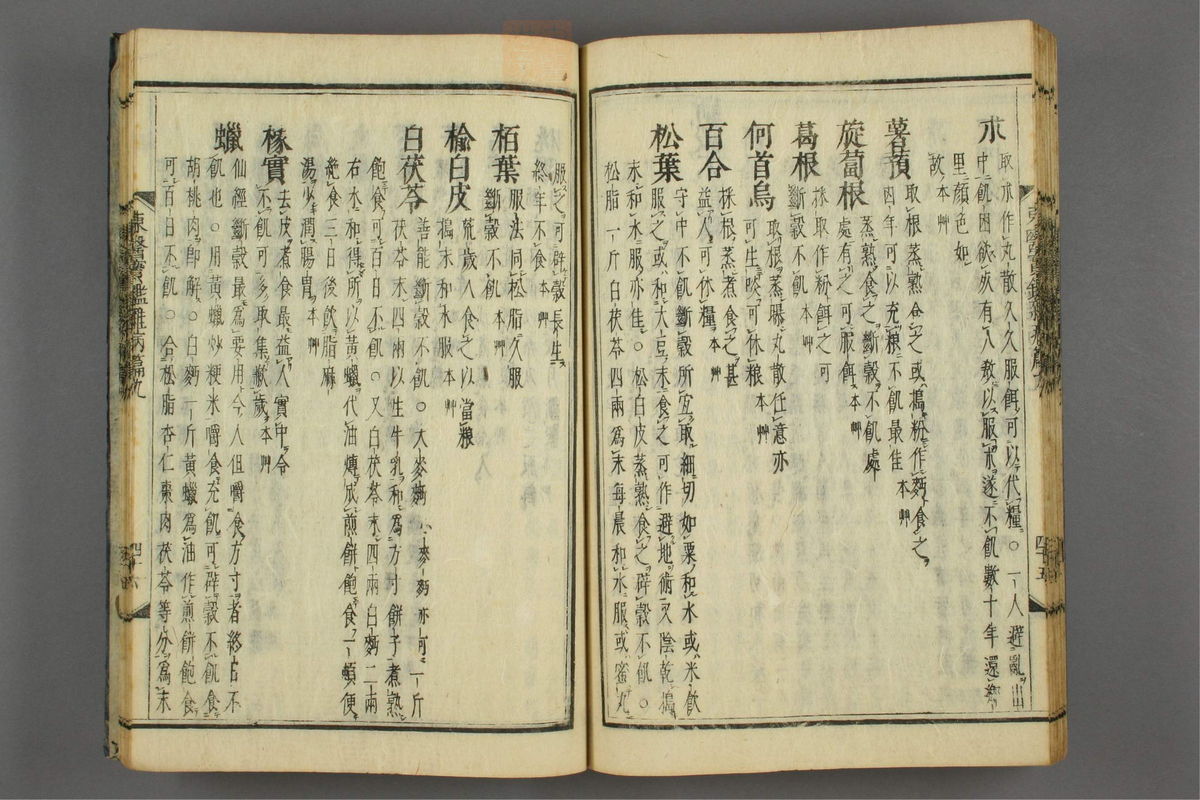 朮
取朮作丸散久久服餌可以代糧○一人避亂山
中飢困欲死有人教以服朮遂不飢數十年還鄕
里顔色如
故本艸
薯蕷
取根蒸熟食之或搗粉作麪食之
四年可以充粮不飢最佳 本艸
旋葍根
蒸熟食之斷穀不飢處
處有之可服餌 本艸
葛根
採取作粉餌之可
斷穀不飢 本艸
何首烏
取根蒸曝丸散任意亦
可生啖可休粮 本艸
百合
採根蒸煮食之甚
益人可休糧 本艸
松葉
守中不飢斷穀所宜取細切如粟和水或米飮
服之或和大豆末食之可作避地術又陰乾搗
末和水服亦佳○松白皮蒸熟食之辟穀不飢○
松脂一斤白茯苓四兩爲末每晨和水服或蜜丸
服之可辟穀長生
終年不食 本艸
栢葉
服法同松脂久服
斷穀不飢 本艸
楡白皮
荒歲人食之以當粮
搗末和水服 本艸
白茯苓
善能斷穀不飢○大麥麪 小麥麪亦可 一斤
茯苓末四兩以生牛乳和爲方寸餠子煮熟
飽食可百日不飢○又白茯苓末四兩白麪二兩
右水和得所以黃蠟代油煿成煎餠飽食一頓便
絶食三日後飮脂麻
湯少許潤腸胃 本艸
橡實
去皮煮食最益人實中令
不飢可多取集禦歲 本艸
蠟
仙經斷穀最爲要用今人但嚼食方寸者終日不
飢也○用黃蠟炒粳米嚼食充飢可辟穀不飢食
胡桃肉即解○白麪一斤黃蠟爲油作煎餠飽食
可百日不飢○合松脂杏仁棗肉茯苓等分爲末
東醫寶鑑雜病篇九
四十六
東醫寶鑑雜病篇九
四十五